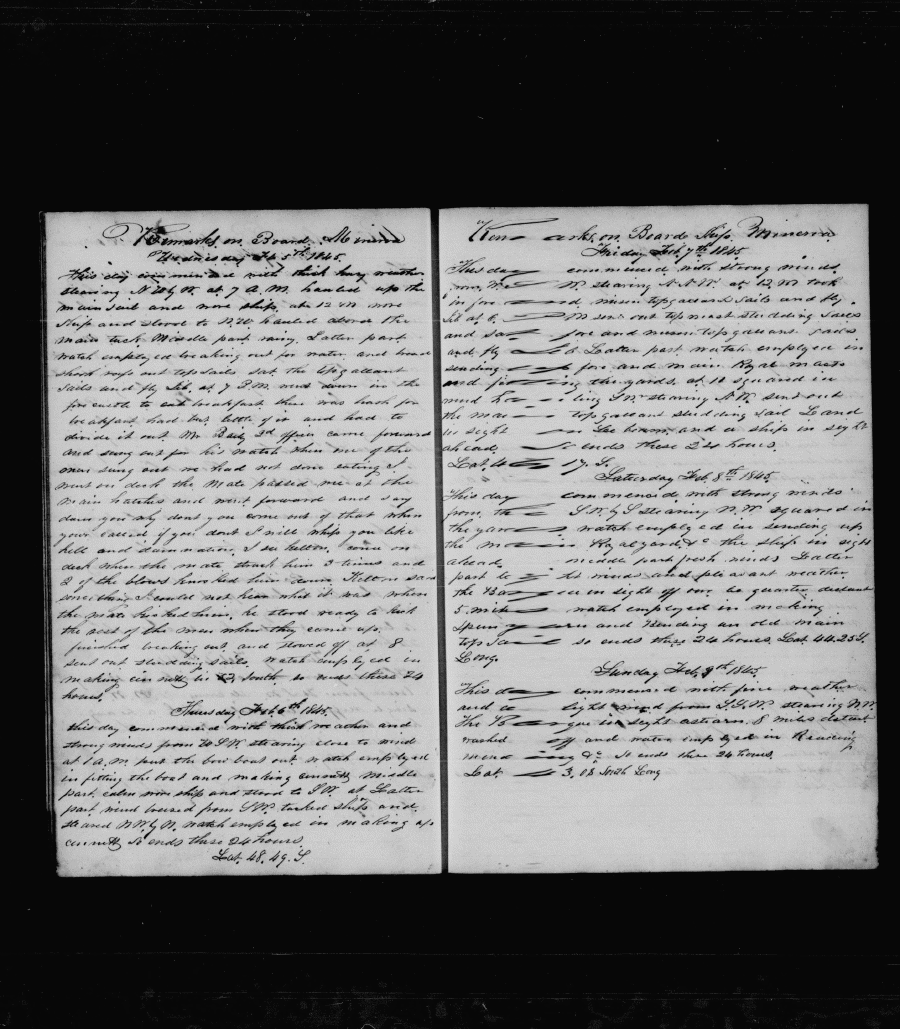 Remarks on Board Minerva
Wednesday Feb 5th 1845.
this day commenced with thick heavy weather
stearing N W by W. at 7 A.M. hauled up the
main sail and wore ship, at 12 M wore
Ship and stood to N.W hauled aboard the
main tack Middle part rainy. Latter part
watch employed breaking out for water, and bread
shook reefs out topsails set the topgallant
Sails and fly Jib. at 7 P.M. went down in the
forecastle to eat breakfast there was hash for
breakfast had but little of it and had to
divide it out Mr 3rd officer came forward
and sung out for his watch when one of the
men sung out we had not done eating I
went on deck the Mate passed me at the
main hatches and went forward and say
damn you why dont you come out of that when
your called if you dont I will whip you like
hell and damnation, I see Kelton come on
deck when the mate struck him 3 times and
2 of the blows knocked him down Kelton said
something I could not hear what it was when
the mate kicked him, he stood ready to kick
the rest of the men when they came up.
finished breaking out and stowed off at 8
sent out studding sails. watch employed in
making cinnett, so ends these 24
hours.
Thursday Feb 6th 1845.
this day commenced with thick weather and
strong winds from W S W stearing close to wind
at 1 A.M. put the bow boat out watch employed
in fitting the boat and making cinnett Middle
part calm wore ship and stood to S.W. at Latter
part wind breezed from S W. tacked ship and
steared N.W. by N. watch employed in making up
cinnett So ends these 24 hours.
Lat. 48.49. S.
Rem arks, on Board Ship Minerva
Friday Feb. 7th 1845.
This day commenced with strong winds.
W. stearing N.N.W. at 12 M took
in fore and mizen topgallant Sails and fly.
Jib at 8 M sent out topmast studding Sails
and sat fore and mizen topgallant sails
and fly Latter part watch employed in
sending up fore and main Royal masts
and fitting the yards, at 10 squared in
wind hauling S W. stearing N.W. sent out
the main topgallant studding Sail Land
in sight on Lee beam, and a ship in sight
ahead, So ends these 24 hours.
Lat. 4 17. S.
Saturday Feb. 8th 1845.
This day commenced with strong winds
from the S W. by S stearing N.W squared in
the yards watch employed in sending up
the main Royal yard, &c the ship in sight
ahead, middle part fresh winds Latter
part light winds and pleasant weather
the in sight off our lee quarter distant
5 miles watch employed in making
Spun yarn and Bending an old main
top Sail so ends these 24 hours Lat 44.25 S.
Long.
Sunday Feb. 9th 1845.
This day commenced with fine weather
and light wind from S.S.W. stearing N.W.
The in sight astearn. 8 miles distant
washed off and watch employed in Reading
mending &c So ends these 24 hours.
Lat. 3, 08 South Long